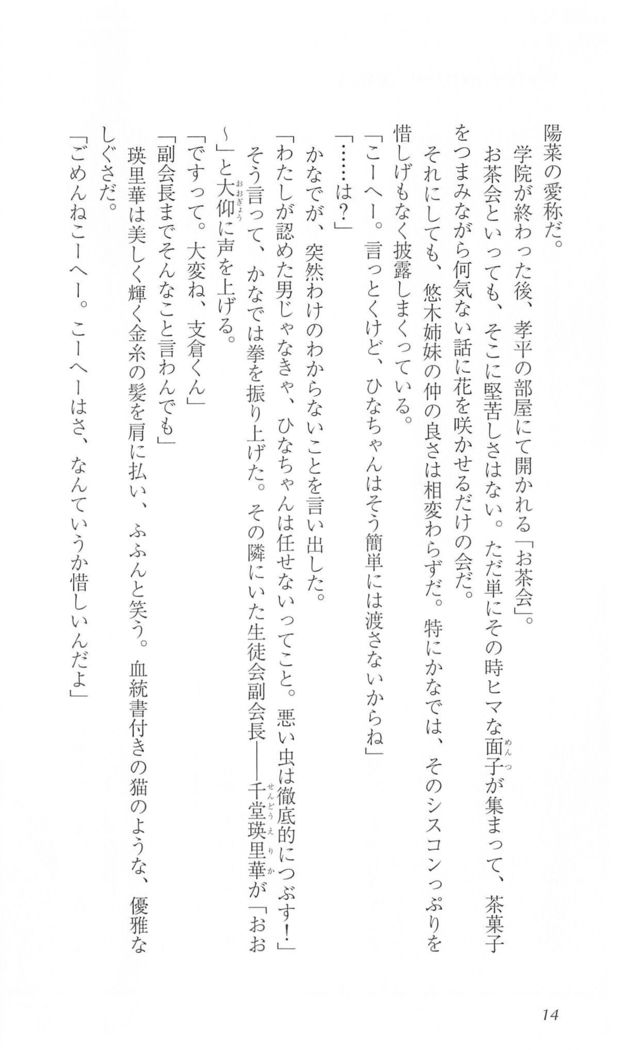 陽菜の愛称だ。
学院が終わった後、孝平の部屋にて開かれる「お茶会」。
お茶会といっても、そこに堅苦しさはない。ただ単にその時ヒマな面子が集まって、茶菓子
をつまみながら何気ない話に花を咲かせるだけの会だ。
それにしても、悠木姉妹の仲の良さは相変わらずだ。特にかなでは、そのシスコンっぷりを
惜しげもなく披露しまくっている。
「こーへー。言っとくけど、ひなちゃんはそう簡単には渡さないからね」
「……は？」
かなでが、突然わけのわからないことを言い出した。
「わたしが認めた男じゃなきゃ、ひなちゃんは任せないってこと。悪い虫は徹底的につぶす！」
そう言って、かなでは拳を振り上げた。その隣にいた生徒会副会長――千堂瑛里華が「おお
～」と大仰に声を上げる。
「ですって。大変ね、支倉くん」
「副会長までそんなこと言わんでも」
瑛里華は美しく輝く金糸の髪を肩に払い、ふふんと笑う。血統書付きの猫のような、優雅な
しぐさだ。
「ごめんねこーへー。こーへーはさ、なんていうか惜しいんだよ」
14